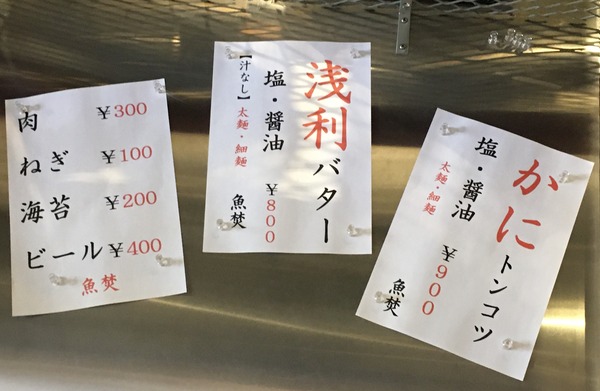 肉 ¥300
ねぎ ¥100
海苔 ¥200
ビール ¥400
魚焚
浅利バター
塩・醤油 ¥800
【汁なし】太麺・細麺 魚焚
かにトンコツ
塩・醤油 ¥900
太麺・細麺 魚焚